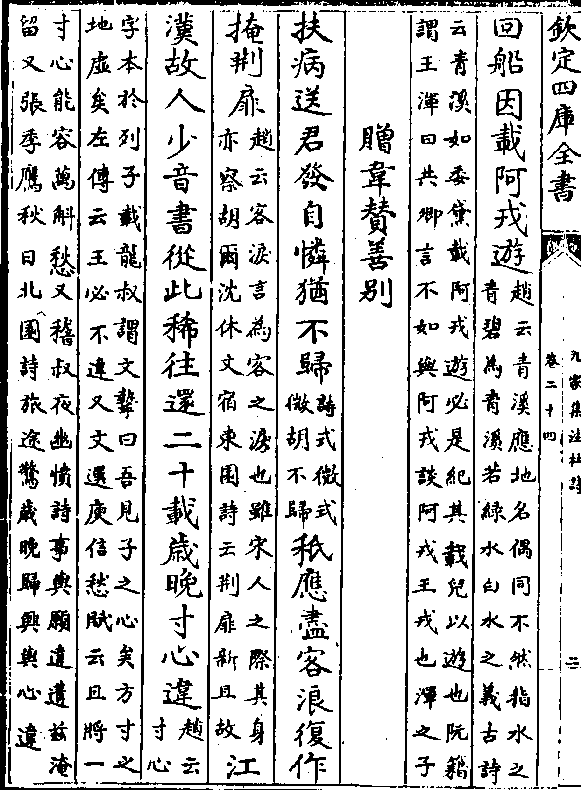 欽定四庫全書
回船因載阿戎遊趙云青溪應地名偶同不然指水之
青碧為青溪若綠水白水之義古詩
云青溪如委黛載阿戎遊必是紀其載兒以遊也阮籍
謂王渾曰共卿言不如與阿戎談阿戎王戎也渾之子
贈韋贊善別
扶病送君發自憐猶不歸詩式微式
微胡不歸秖應盡客淚復作
掩荆扉趙云客淚言為客之淚也雖宋人之際其身
亦察胡爾沈休文宿東園詩云荆扉新且故江
漢故人少音書從此稀往還二十載歲晚寸心違趙云
寸心
字本於列子載龍叔謂文摯曰吾見子之心矣方寸之
地虚矣左傳云王必不違又文選庾信愁賦云且將一
寸心能容萬斛愁又稽叔夜幽憤詩事與願違遘兹淹
留又張季鷹秋日北園詩旅途驚歲晚歸興與心違
九家集注杜詩
卷二十四
二